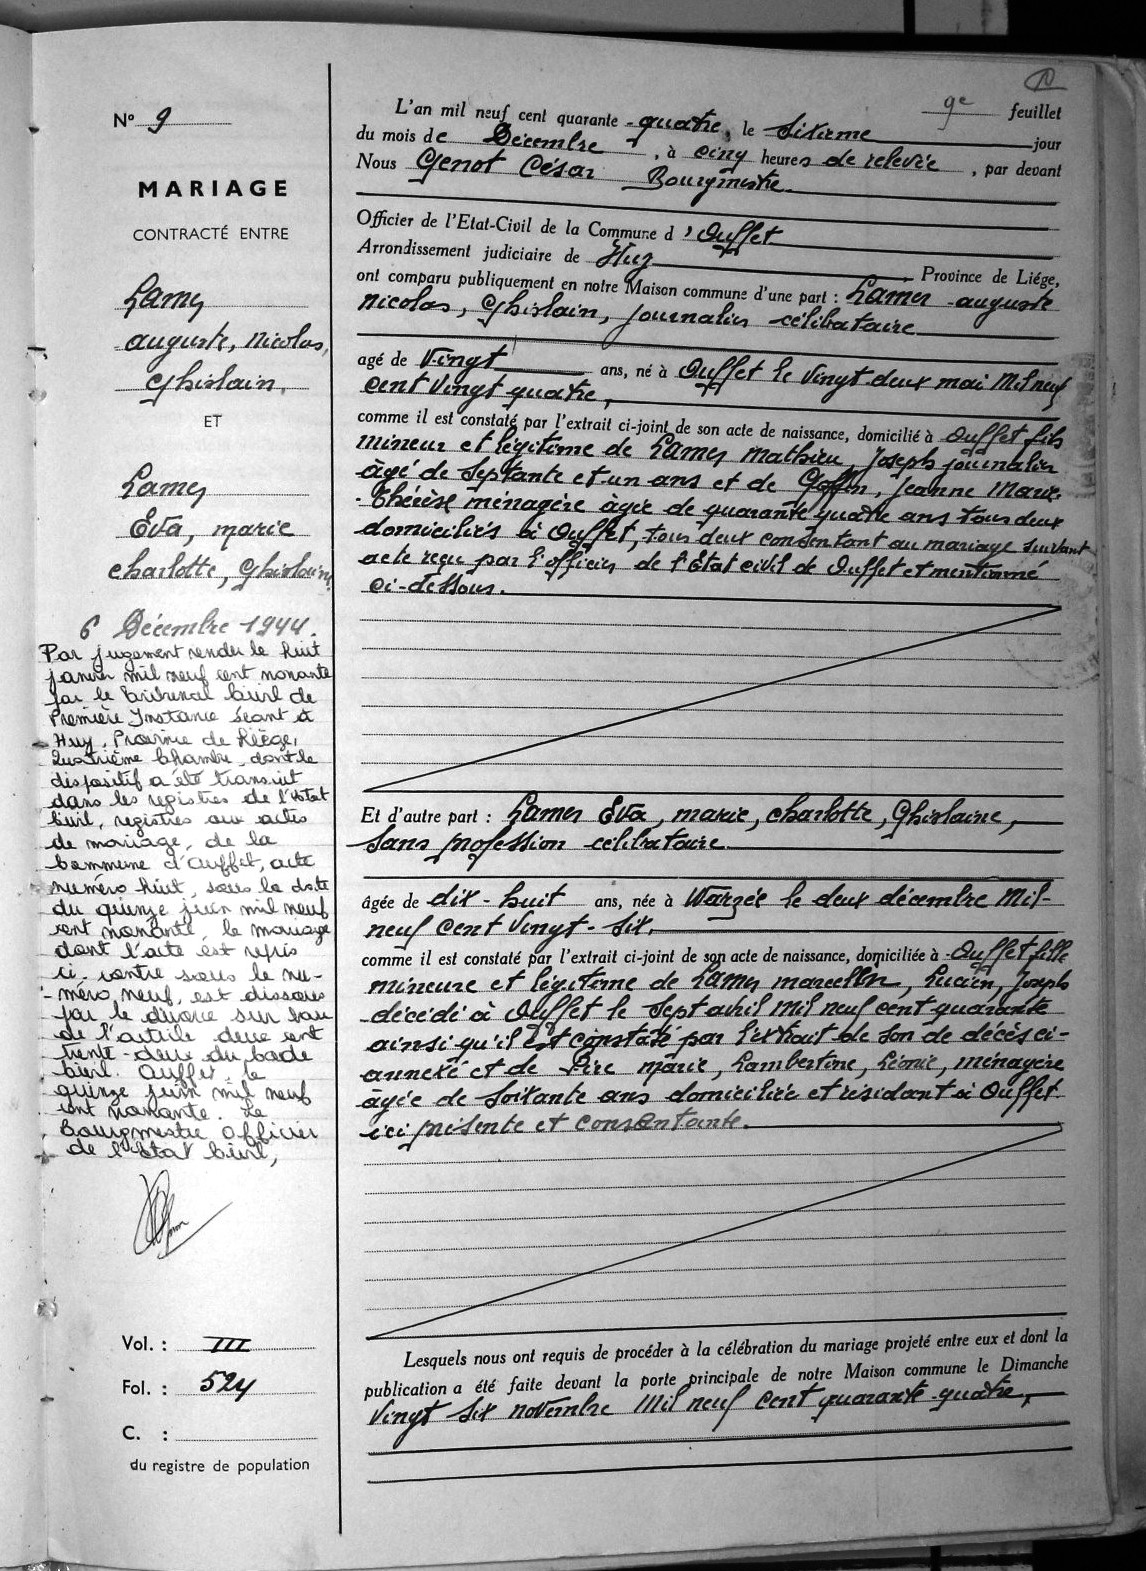 9e feuillet
N° 9
MARIAGE
CONTRACTÉ ENTRE
Lamey
Auguste, Nicolas,
Ghislain,
ET
Lamey
Eva, Marie
Charlotte, Ghislaine,
6 Décembre 1944.
Par jugement rendu le huit
janvier mil neuf cent nonante
par le Tribunal Civil de
Première Instance séant à
Huy, Province de Liège,
Quatrième Chambre, dont le
dispositif a été transcrit
dans les registres de l'Etat
Civil, registres aux actes
de mariage, de la
Commune d'Ouffet, acte
numéro huit, sous la date
du quinze juin mil neuf
cent nonante, le mariage
dont l'acte est repris
ci-contre sous le nu-
méro neuf, est dissous
par le divorce sur base
de l'article deux cent
trente-deux du Code
Civil. Ouffet, le
quinze juin mil neuf
cent nonante. Le
Bourgmestre Officier
de l'Etat Civil,
Vol. : III
Fol. : 524
C. :
du registre de population
L'an mil neuf cent quarante-quatre, le sixième jour
du mois de Décembre, à cinq heures de relevée, par devant
Nous Genot César Bourgmestre
Officier de l'Etat-Civil de la Commune d'Ouffet
Arrondissement judiciaire de Huy Province de Liége,
ont comparu publiquement en notre Maison commune d'une part : Lamey Auguste
Nicolas, Ghislain, journalier célibataire
agé de vingt ans, né à Ouffet le vingt deux mai mil neuf
cent vingt quatre,
comme il est constaté par l'extrait ci-joint de son acte de naissance, domicilié à Ouffet fils
mineur et légitime de Lamey Mathieu Joseph journalier
âgé de septante et un ans et de Goffin, Jeanne Marie
Thérèse ménagère âgée de quarante quatre ans tous deux
domiciliés à Ouffet, tous deux consentant au mariage suivant
acte reçu par l'officier de l'Etat civil de Ouffet et mentionné
ci-dessous.
Et d'autre part : Lamey Eva, Marie, Charlotte, Ghislaine,
sans profession célibataire
âgée de dix-huit ans, née à Warzée le deux décembre mil-
neuf cent vingt-six,
comme il est constaté par l'extrait ci-joint de son acte de naissance, domiciliée à Ouffet fille
mineure et légitime de Lamey Marcellin, Lucien, Joseph
décédé à Ouffet le sept avril mil neuf cent quarante
ainsi qu'il est constaté par l'extrait de son de décès ci-
annexé et de Pire Marie, Lambertine, Léonie, ménagère
âgée de soixante ans domiciliée et résidant à Ouffet
ici présente et consentante.
Lesquels nous ont requis de procéder à la célébration du mariage projeté entre eux et dont la
publication a été faite devant la porte principale de notre Maison commune le Dimanche
vingt six novembre mil neuf cent quarante-quatre,